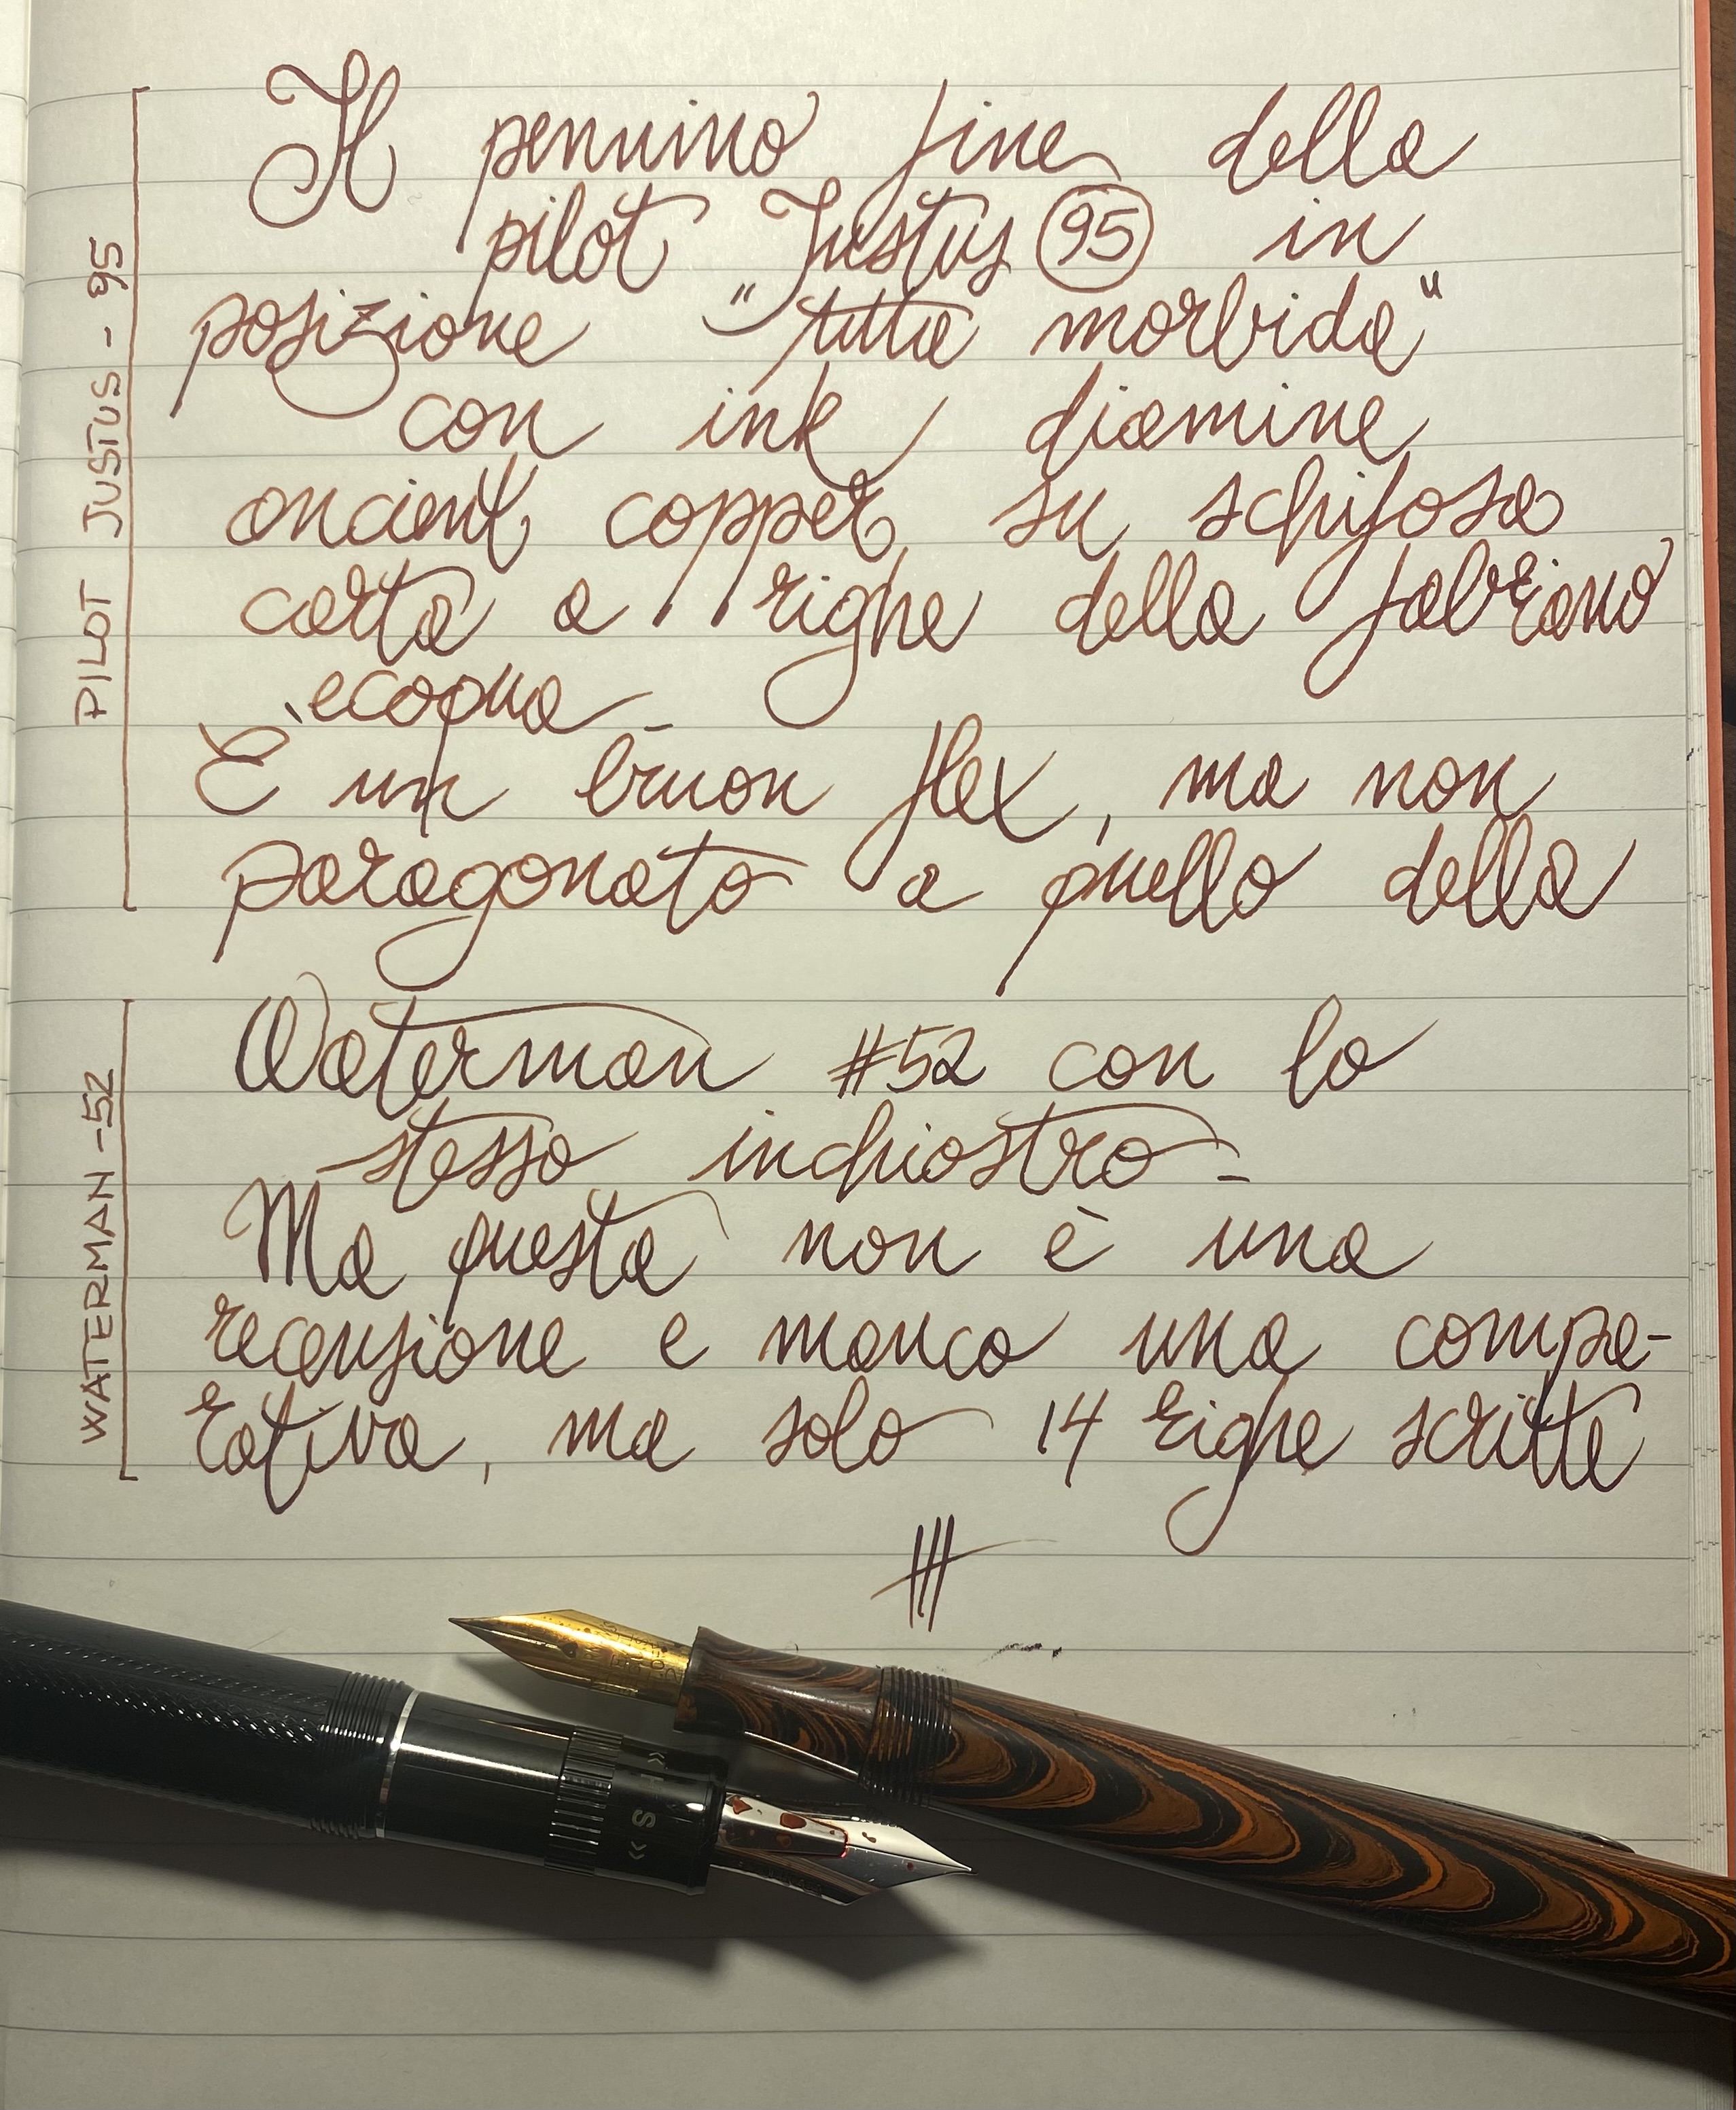 Il pennino fine della
pilot Justus 95 in
posizione "tutta morbida"
con ink diamine
ancient copper, su schifosa
carta a righe della fabriano
ecoqua -
È un buon flex, ma non
paragonato a quello della
Waterman #52 con lo
stesso inchiostro -
Ma questa non è una
recensione e manco una compa-
rativa, ma solo 14 righe scritte
PILOT JUSTUS - 95
WATERMAN - 52
« H
« S